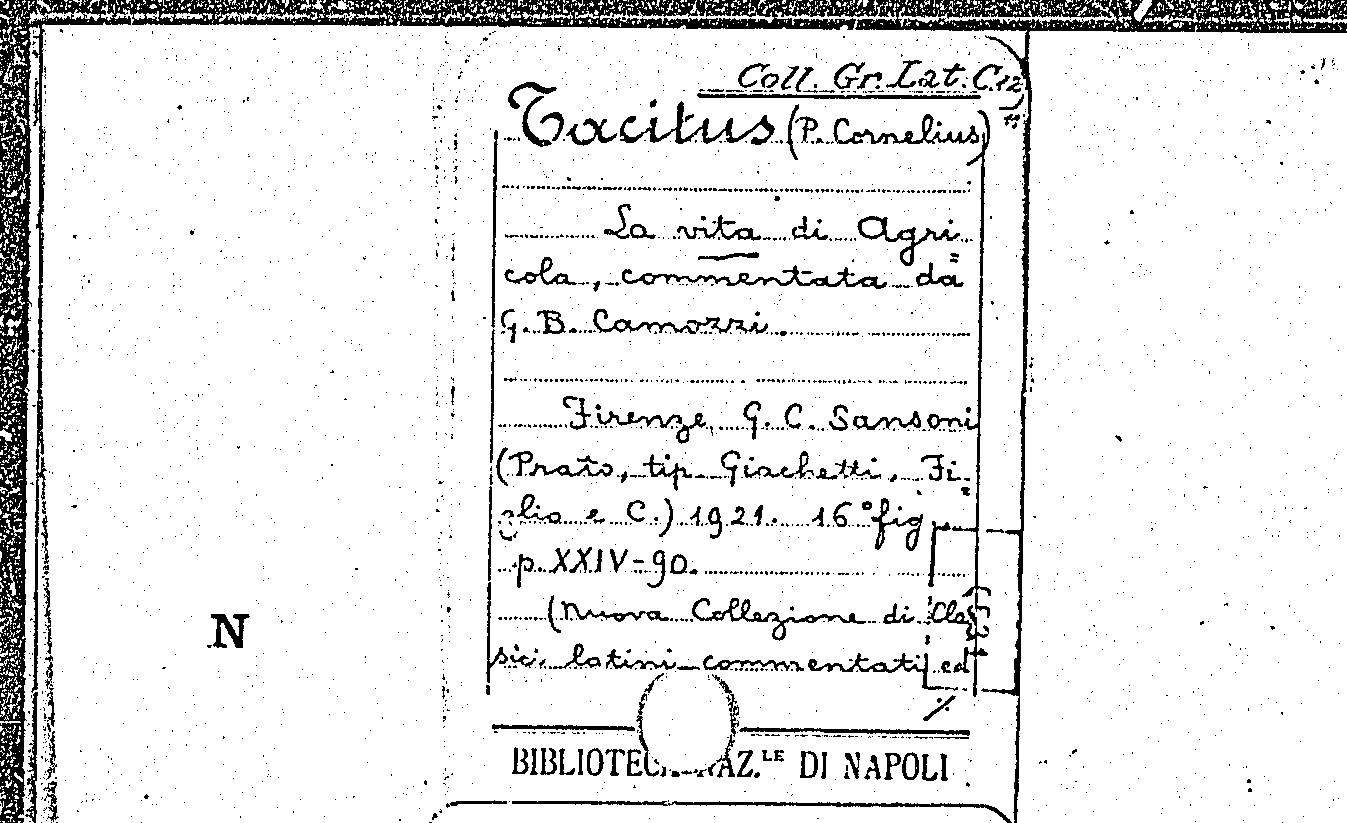 Coll. Gr. Lat. C.12)
Tacitus (P. Cornelius)
La vita di Agri=
cola, commentata da
G. B. Camozzi.
Firenze, G. C. Sansoni
(Prato, tip. Giachetti, Fi=
glio e C.) 1921. 16° fig
p. XXIV-90.
(Nuova Collezione di Clas
sici latini commentati ed
N
BIBLIOTECA NAZ.LE DI NAPOLI